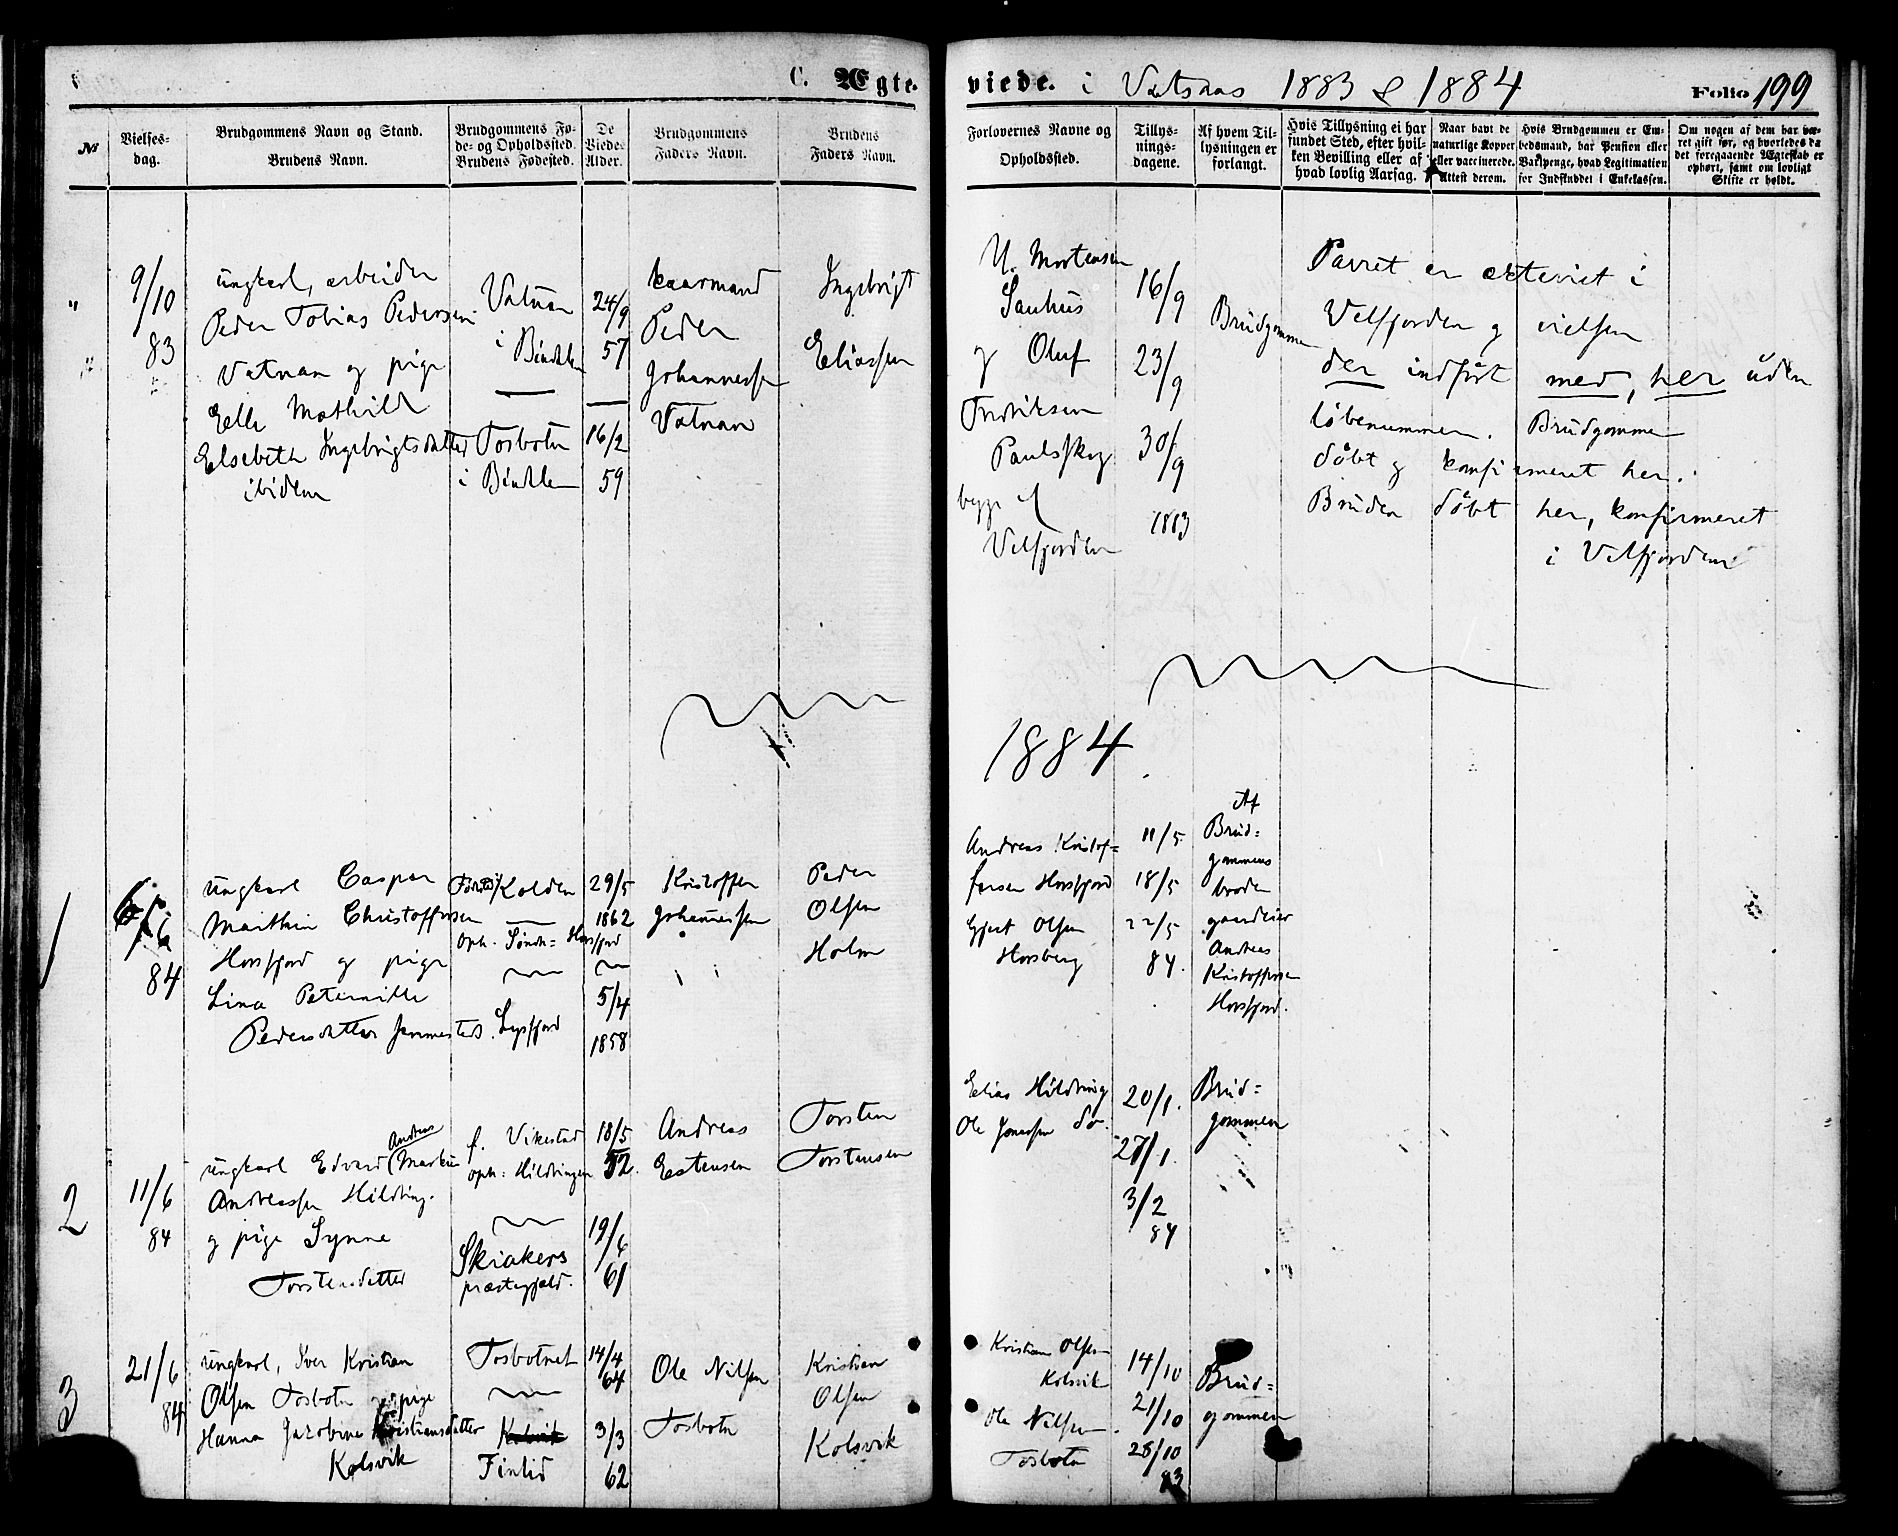 C. Ægte-
viede. i Vatsaas 1883 & 1884
Folio 199
No
Vielses-
dag.
Brudgommens Navn og Stand.
Brudens Navn.
Brudgommens Fø-
de- og Opholdssted.
Brudens Fødested.
De
Viedes
Alder.
Brudgommens
Faders Navn.
Brudens
Faders Navn.
Forlovernes Navne og
Opholdssted.
Tillys-
nings-
dagene.
Af hvem Til-
lysningen er
forlangt.
Hvis Tillysning ei har
fundet Sted, efter hvil-
ken Bevilling eller af
hvad lovlig Aarsag.
Naar havt de
naturlige Kopper
eller vaccinerede.
Attest derom.
Hvis Brudgommen er Em-
bedsmand, har Pension eller
Vartpenge, hvad Legitimation
for Indskuddet i Enkekassen.
Om nogen af dem har væ-
ret gift før, og hvorledes da
det foregaaende Ægteskab er
ophørt, samt om lovligt
Skifte er holdt.
"
9/10
83
ungkarl, arbeider
Peder Tobias Pedersen
Vatnan og pige
Elle Mathilde
Elsebeth Ingebrigtsdatter
ibidem
Vatnan
i Bindalen
Tosbotn
i Bindalen
24/9
57
16/2
59
kaarmand
Peder
Johannessen
Vatnan
Ingebrigt
Eliassen
Mortensen
Sauhus
og Oluf
Fredriksen
Paulsskog
begge af
Velfjorden
16/9
23/9
30/9
1883
Brudgommen
Parret er ægteviet i
Velfjorden og vielsen
der indført med, her uden
løbenummer. Brudgommen
døbt og konfirmeret her.
Bruden døbt her, konfirmeret
i Velfjorden
1884
1
6/6
84
ungkarl Caspar
Marthin Christoffersen
Horsfjord og pige
Lina Peternille
Pedersdatter
Kolden
Oph. Søndr= Horsfjord
29/5
1862
5/4
1858
Kristoffer
Johannessen
Peder
Olsen
Holm
Andreas Kristof=
fersen Horsfjord
Ejert Olsen
Horsberg
11/5
18/5
22/5
84.
Af
Brud=
gommens
broder
gaardeier
Andreas
Kristoffersen
Horsfjord.
2
11/6
84
Andreas
ungkarl Edvard (Martin
Andreassen Hildring.
og pige Synne
Torstensdatter
f. Vikestad
oph: Hildringen
Skiakers
præstegjeld.
18/5
52.
19/6
61
Andreas
Estensen
Torsten
Torstensen
Elias Hildring
Ole Jonassen do.
20/1.
27/1.
3/2
84
Brud=
gommen
3
21/6
84
ungkarl, Iver Kristian
Olsen Tosbotn og pige
Hanna Jacobine Kristiansdatter
Kolsvik
Tosbotnet
Kolsvik
Finlid
14/4
64
3/3
62
Ole Nilsen
Tosbotn
Kristian
Olsen
Kolsvik
Kristian Olsen
Kolsvik
Ole Nilsen
Tosbotn
14/10
21/10
28/10
83
Brud=
gommen